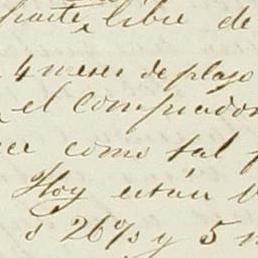 parte, libre de
4 meses de plazo
el comprador
como tal
Hoy están
ó 26% y 5